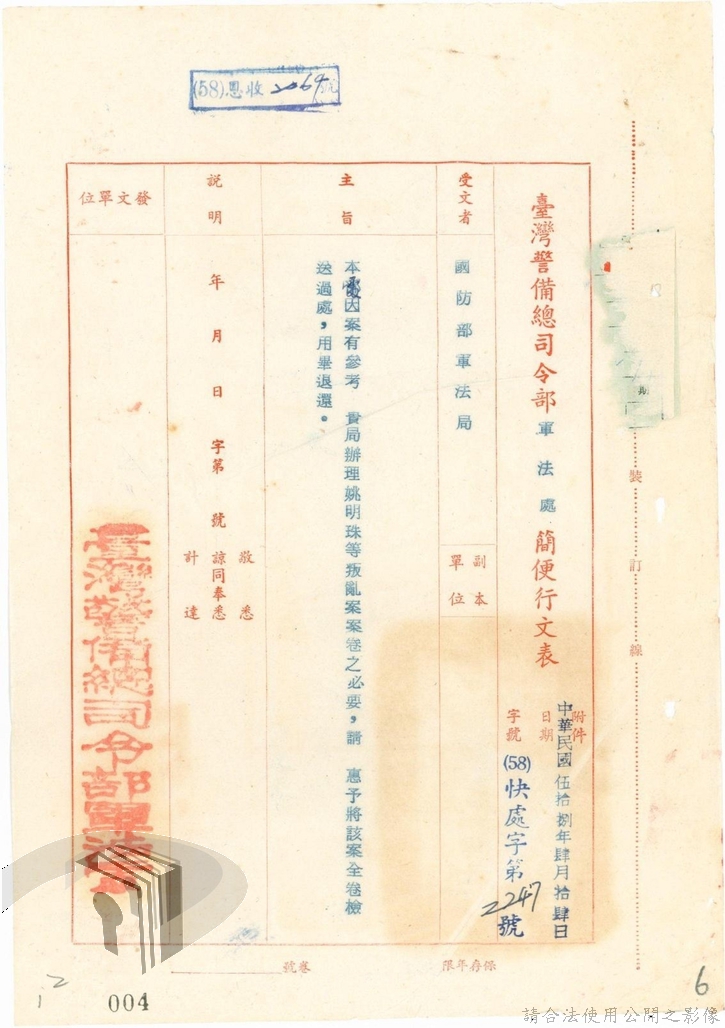 (58)恩收2069號
臺灣警備總司令部軍法處簡便行文表
附件
日期 中華民國伍拾捌年肆月拾肆日
字號 (58)快處字第2247號
受文者
國防部軍法局
副本
單位
主旨
本處因案有參考 貴局辦理姚明珠等叛亂案案卷之必要,請 惠予將該案全卷檢
送過處,用畢退還。
說明
年 月 日 字第 號
敬悉
諒同奉悉
計達
發文單位
臺灣警備總司令部軍法處
裝訂線
期
保存年限
卷號
12
004
6
請合法使用公開之影像